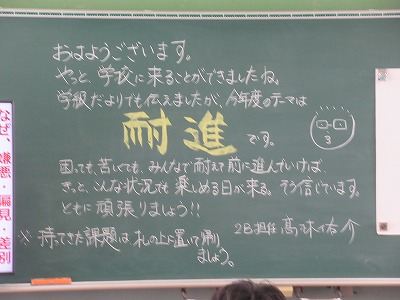 おはようございます。
やっと、学校に来ることができましたね。
学級だよりでも伝えましたが、今年度のテーマは
耐進です。
困っても、苦しくても、みんなで耐えて前に進んでいけば、
きっと、こんな状況でも楽しめる日が来る。そう信じています。
ともに頑張りましょう!!
2B担任 高木佑介
※持ってきた課題は机の上に置いて帰り
ましょう。
なぜ、嫌悪・偏見・差別